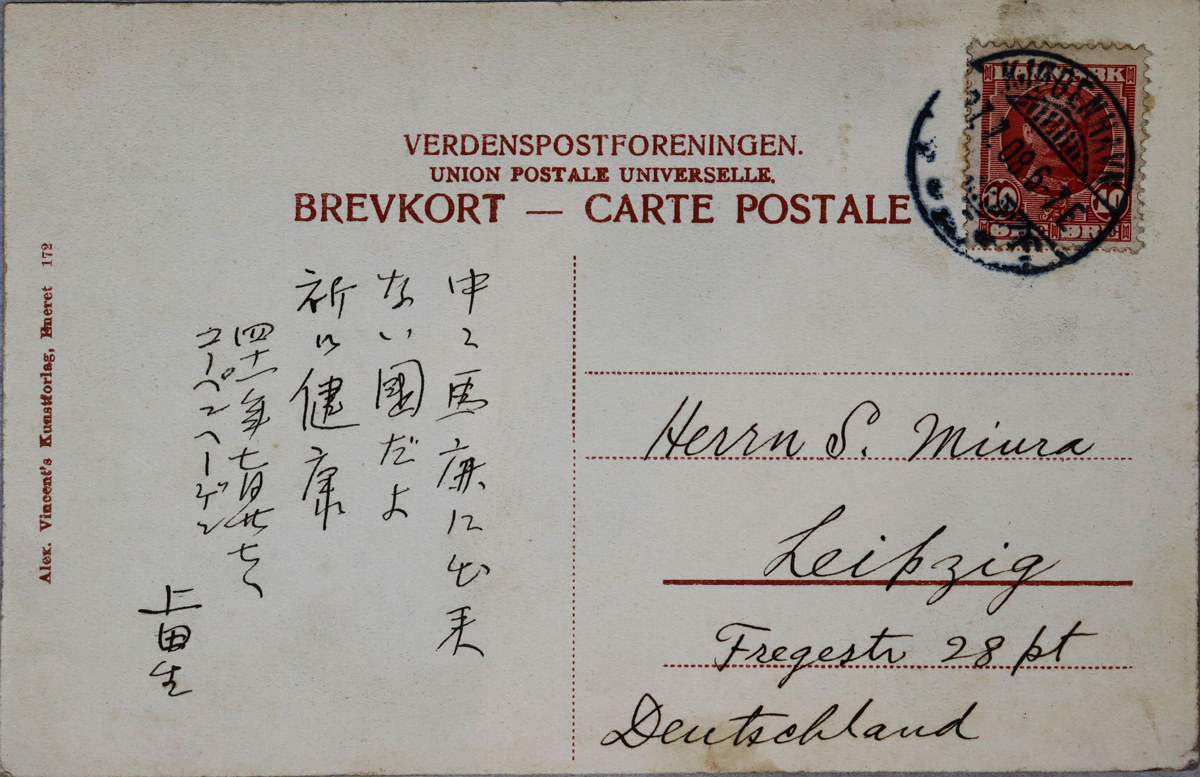 VERDENSPOSTFORENINGEN.
UNION POSTALE UNIVERSELLE.
BREVKORT — CARTE POSTALE
DANMARK
KJØBENHAVN
27.7.08.6-7E
10 10
ØRE ØRE
中々馬鹿に出来
ない國だよ
祈御健康
四十一年七月廿七日
コーペンヘーゲン
上田生
Herrn S. Miura
Leipzig
Fregestr 28 pt
Deutschland
Alex. Vincent's Kunstforlag, Eneret 172